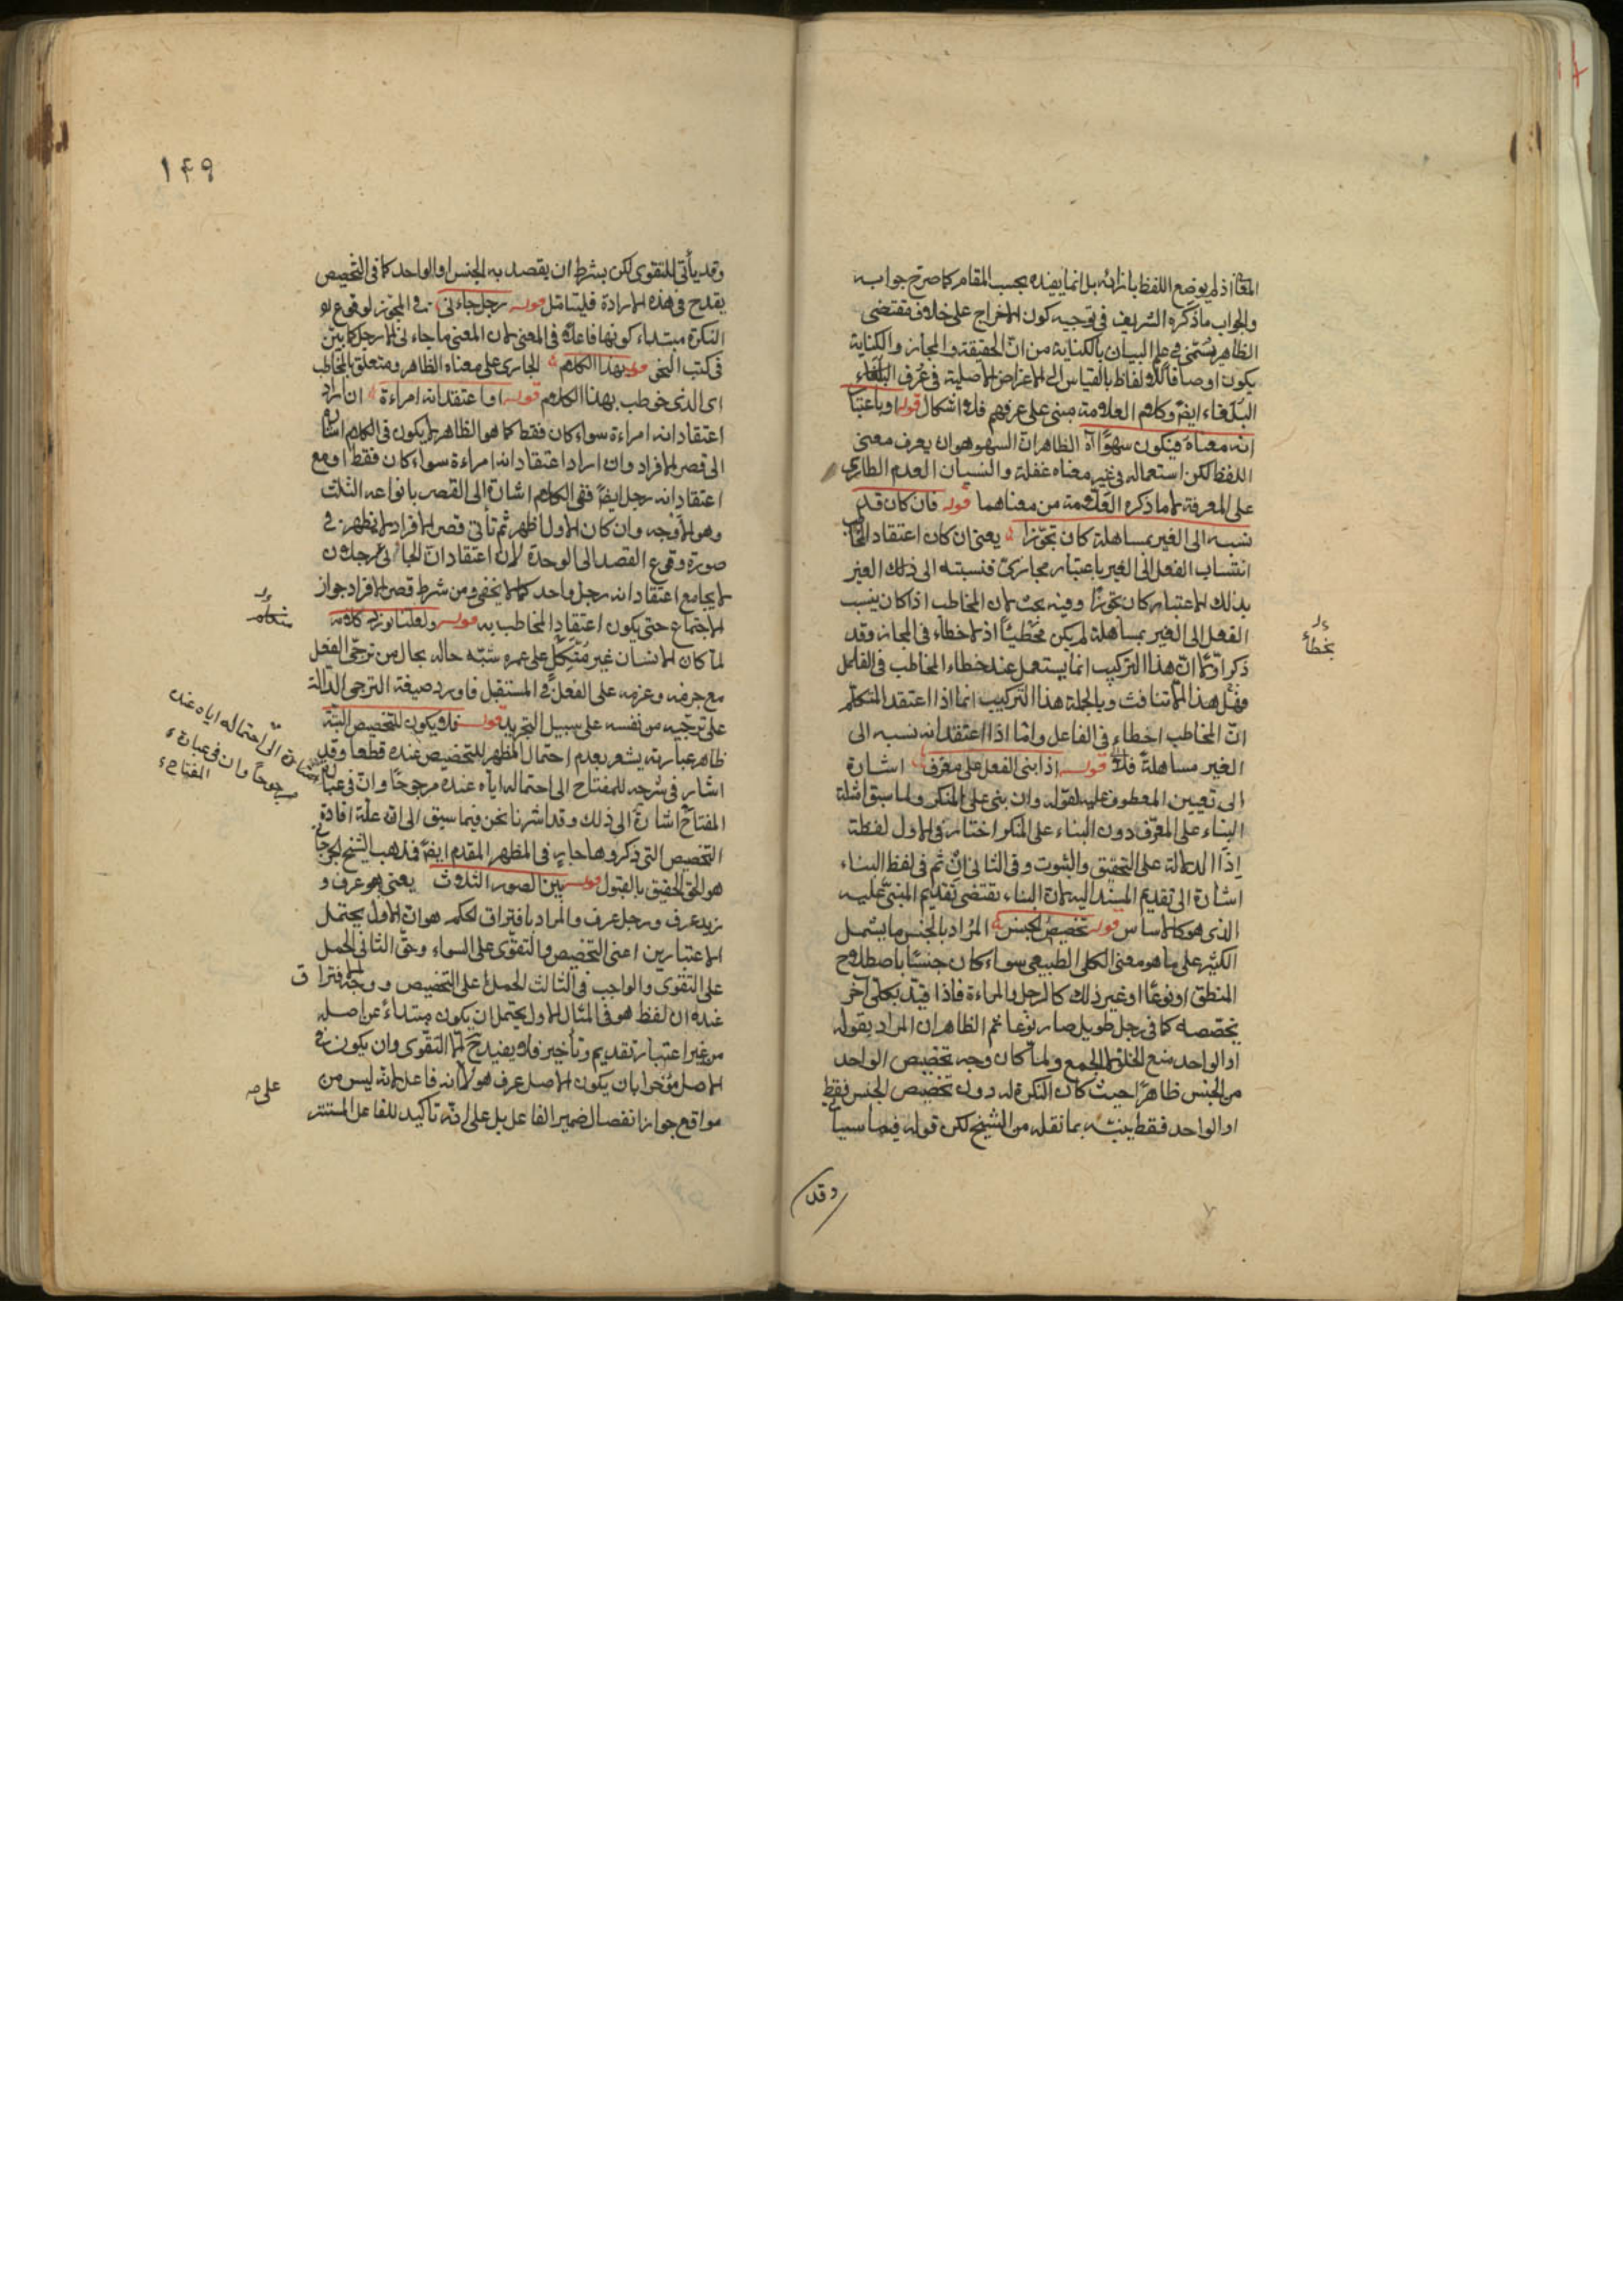 المعنى اذ لم يوضع اللفظ بازائه بل انما يفيده بحسب المقام كما صرح جوابه
والجواب ما ذكره الشريف في توجيه كون الاخراج على خلاف مقتضى
الظاهر يسمى في علم البيان بالكناية من ان الحقيقة والمجاز والكناية
يكون اوصافا للالفاظ بالقياس الى الاغراض الاصلية في عرف البلغاء
البلغاء ايضا وكلام العلامة مبنى على عرفهم فلا اشكال قوله او باعتبا
انه معناه فيكون سهوًا آه الظاهر ان السهو هو ان يعرف معنى
اللفظ لكن استعماله في غير معناه غفلة والنسيان العدم الطارى
على المعرفة لا ما ذكره العلامة من معناهما قوله فان كان قد
نسبه الى الغير بمساهلة كان تجوزا يعنى ان كان اعتقاد المخاطب
انتساب الفعل الى الغير باعتبار مجازىّ فنسبته الى ذلك الغير
بذلك الاعتبار كان تجوزًا وفيه بحث لان المخاطب اذا كان ينسب
الفعل الى الغير بمساهلة لم يكن مخطيئًا اذ لا خطاء في المجاز وقد
ذكر اولا ان هذا التركيب انما يستعمل عند خطاء المخاطب في الفاعل
فهل هذا الا تنافٍ وبالجملة هذا التركيب انما اذا اعتقد المتكلم
ان المخاطب اخطاء في الفاعل واما اذا اعتقد انه نسبه الى
الغير مساهلة فلا قوله اذا بنى الفعل على معرف اشارة
الى تعيين المعطوف عليه لقوله وان بنى على المنكر ولما سبق امثلة
البناء على المعرّف دون البناء على المنكر اختار في الاول لفظة
اذا الدالة على التحقيق والثبوت وفي الثانى ان ثم في لفظ البناء
اشارة الى تقديم المسند اليه لان البناء يقتضى تقديم المبنىّ عليه
الذى هو كالاساس قوله تخصيص الجنس المراد بالجنس ما يشمل
الكثير على ما هو معنى الكلى الطبيعى سواء كان جنسًا باصطلاح
المنطق او نوعًا او غير ذلك كالرجل والمراءة فاذا قيّد بكلى آخر
يخصصه كما في رجل طويل صار نوعا ثم الظاهر ان المراد بقوله
او الواحد منع الخلو لا الجمع ولما كان وجه تخصيص الواحد
من الجنس ظاهرًا حيث كان النكرة له دون تخصيص الجنس فقط
او الواحد فقط بينه بما نقله من الشيخ لكن قوله فيما سيأ
وقد
بخطأ
١٤٩
وقد يأتى للتقوى لكن بشرط ان يقصد به الجنس او الواحد كما في التخصيص
يقدح في هذه الارادة فليتامل قوله رجل جاءنى المجوّز لوقوع
النكرة مبتداء كونها فاعلا في المعنى لان المعنى ما جاءنى الا رجل كما بيّن
في كتب النحو قوله بهذا الكلام الجارى على معناه الظاهر ومتعلق بالمخاطب
اى الذى خوطب بهذا الكلام قوله او اعتقد انه امراءة ان اراد
اعتقاد انه امراءة سواء كان فقط كما هو الظاهر لا يكون في الكلام اشارة
الى قصر الافراد وان اراد اعتقاد انه امراءة سواء كان فقط او مع
اعتقاد انه رجل ايضا ففى الكلام اشارة الى القصر بانواعه الثلث
وهو الاوجه وان كان الاول اظهر ثم تأتى قصر الافراد لا يظهر في
صورة وقوع القصد الى الوحدة لان اعتقاد ان الجائى رجلان
لا يجامع اعتقاد انه رجل واحد كما لا يخفى ومن شرط قصر الافراد جواز
الاجتماع حتى يكون اعتقاد المخاطب به قوله ولعلنا نورد كلامه
لما كان الانسان غير متّكل على عمره شبّه حاله بحال من ترجى الفعل
مع جرضه وعزمه على الفعل في المستقبل فاورد صيغة الترجى الدالة
على ترجّيه من نفسه على سبيل التجريد قوله فلا يكون للتخصيص البتة
ظاهر عبارته يشعر بعدم احتمال المظهر للتخصيص عنده قطعا وقد
اشار في شرحه للمفتاح الى احتماله اياه عنده مرجوحًا وان في عبارة
المفتاح اشارة الى ذلك وقد اشرنا نحن فيما سبق الى ان علة افادة
التخصيص التى ذكروها جارٍ في المظهر المقدم ايضا فمذهب الشيخ الجرجانى
هو الحق الحقيق بالقبول قوله بين الصور الثلاث يعنى هو عرف و
زيد عرف ورجل عرف والمراد بافتراق الحكم هو ان الاول يحتمل
الاعتبارين اعنى التخصيص والتقوى على السواء وحق الثانى الحمل
على التقوى والواجب في الثالث الحمل على التخصيص ووجه الافتراق
عنده ان لفظ هو في المثال الاول يحتمل ان يكون مبتداءً عن اصله
من غير اعتبار تقديم وتأخير فلا يفيد ح الا التقوى وان يكون في
الاصل مؤخرا بان يكون الاصل عرف هو لا انه فاعل لانه ليس من
مواقع جواز انفصال ضمير الفاعل بل على انه تأكيد للفاعل المستتر
اشارة الى احتماله اياه عنده
مرجوحًا وان في عبارة
المفتاح
على صه